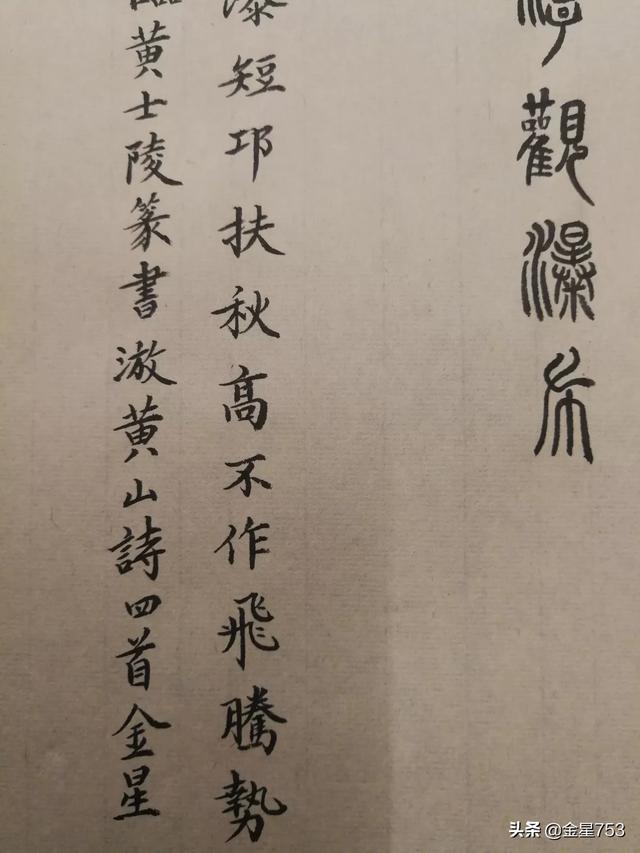 觀瀑布
瀑短邛扶秋高不作飛騰勢
臨黄士陵篆書游黄山詩四首金星
头条 @金星753